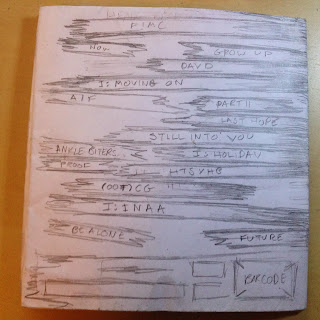 FIMC
NOW GROW UP
DAYD
I: MOVING ON
AIF PART II
LAST HOPE
STILL INTO YOU
ANKLE BITERS I: HOLIDAY
PROOF HTSYHB
(ONE)CG
I: INAA
BE ALONE FUTURE
BARCODE